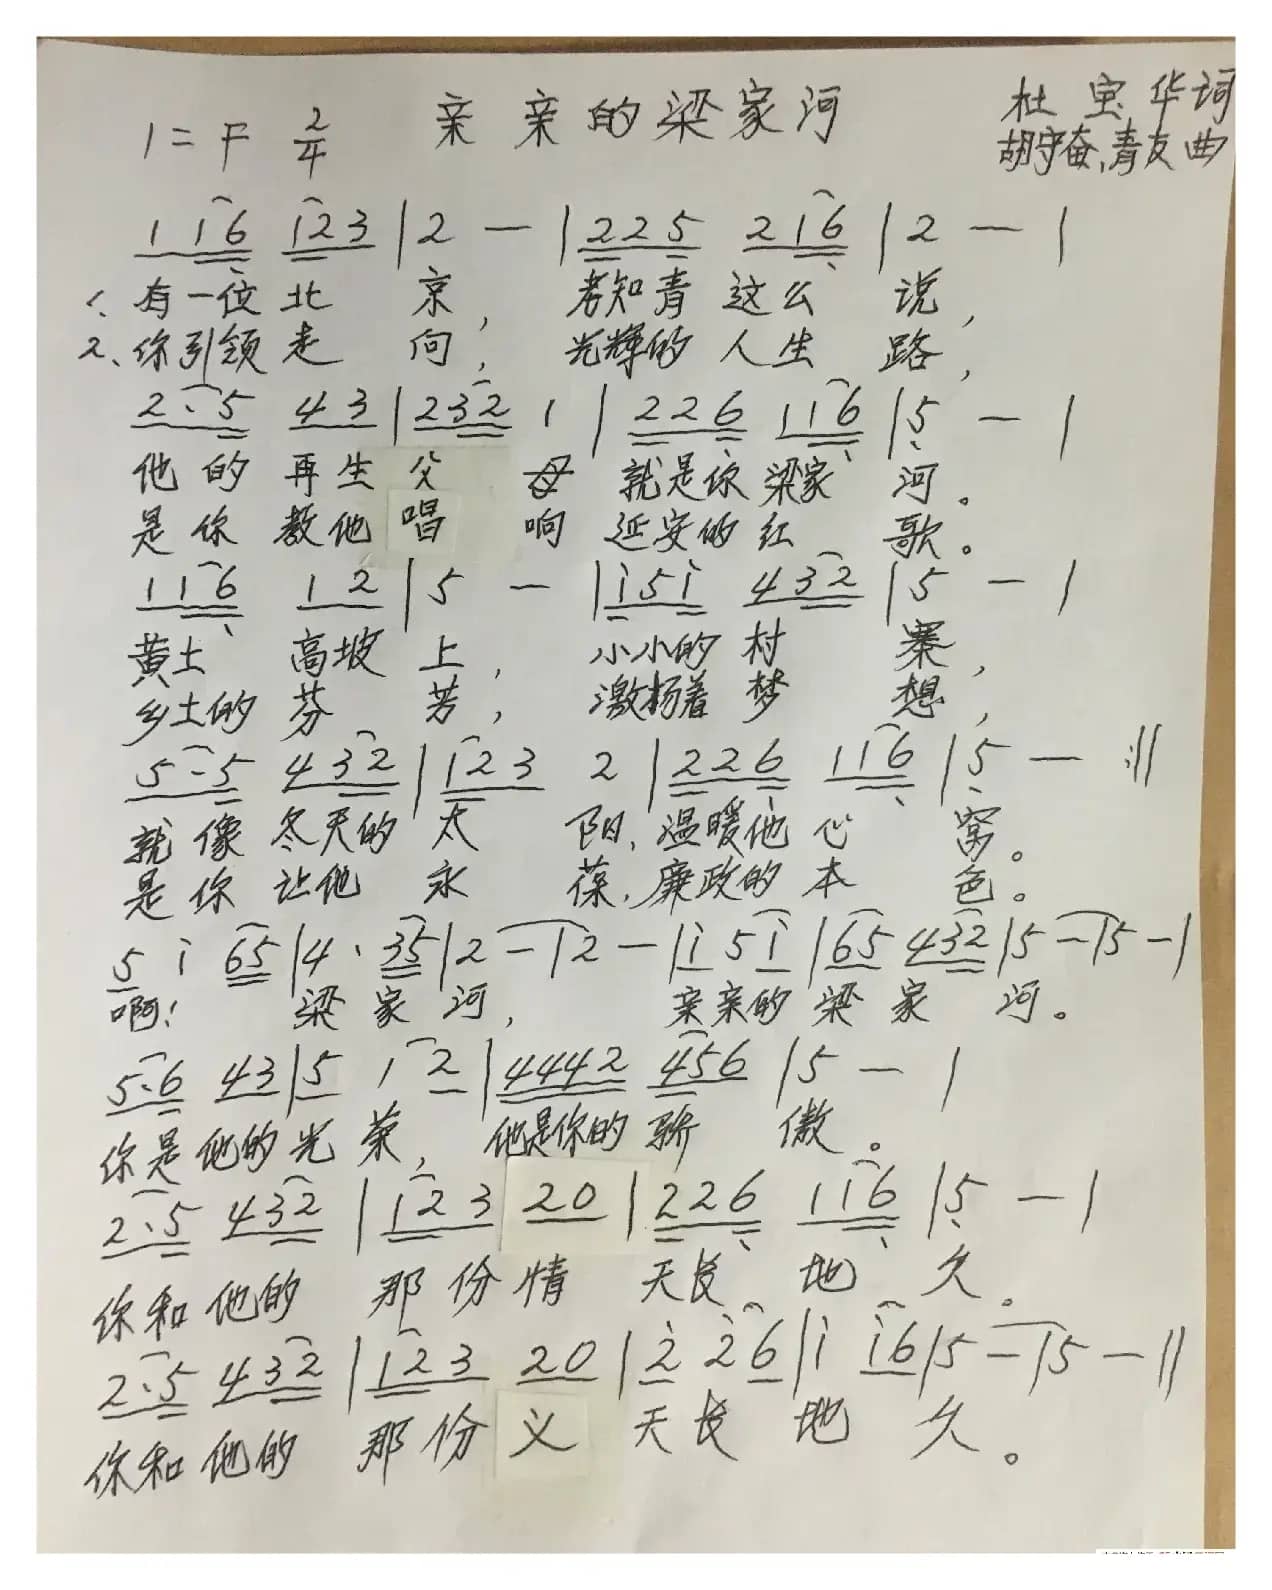 亲亲的梁家河
1=F 2/4
杜宝华词
胡守奋、青友曲
1 1 6 1 2 3 | 2 — | 2 2 5 2 1 6 | 2 — |
1、有一位北京，老知青这么说，
2、你引领走向，光辉的人生路，
2·5 4 3 | 2 3 2 1 | 2 2 6 1 1 6 | 5 — |
他的再生父母就是你梁家河。
是你教他唱响延安的红歌。
1 1 6 1 2 | 5 — | i 5 i 4 3 2 | 5 — |
黄土高坡上，小小的村寨，
乡土的芬芳，激扬着梦想，
5·5 4 3 2 | 1 2 3 2 | 2 2 6 1 1 6 | 5 — :||
就像冬天的太阳，温暖他心窝。
是你让他永葆，廉政的本色。
5 i 6 5 | 4· 3 5 | 2 — | 2 — | i 5 i | 6 5 4 3 2 | 5 — | 5 — |
啊！梁家河，亲亲的梁家河。
5·6 4 3 | 5 1 2 | 4 4 4 2 4 5 6 | 5 — |
你是他的光荣，他是你的骄傲。
2·5 4 3 2 | 1 2 3 2 0 | 2 2 6 1 1 6 | 5 — |
你和他的那份情天长地久。
2·5 4 3 2 | 1 2 3 2 0 | 2 2 6 | i i 6 | 5 — | 5 — ||
你和他的那份义天长地久。